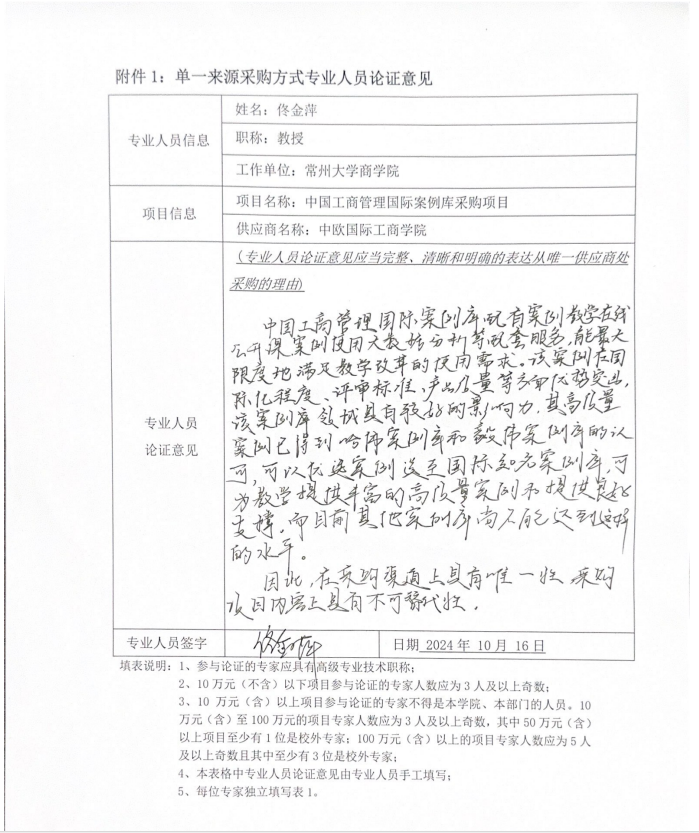 附件 1：单一来源采购方式专业人员论证意见
专业人员信息
姓名：佟金萍
职称：教授
工作单位：常州大学商学院
项目信息
项目名称：中国工商管理国际案例库采购项目
供应商名称：中欧国际工商学院
专业人员
论证意见
(专业人员论证意见应当完整、清晰和明确的表达从唯一供应商处
采购的理由)
中国工商管理国际案例库配有案例教学在线
公开课、案例使用大数据分析等配套服务，能最大
限度地满足教学改革的使用需求。该案例在国
际化程度、评审标准、产品质量等方面优势突出，
该案例库领域具有较好的影响力，其高质量
案例已得到哈佛案例库和毅伟案例库的认
可，可以优选案例送至国际知名案例库，可
为教学提供丰富的高质量案例和提供良好
支撑，而目前其他案例库尚不能达到这样
的水平。
因此，在采购渠道上具有唯一性，采购
项目内容上具有不可替代性。
专业人员签字
佟金萍
日期 2024 年 10 月 16 日
填表说明：1、参与论证的专家应具有高级专业技术职称；
2、10 万元（不含）以下项目参与论证的专家人数应为 3 人及以上奇数；
3、10 万元（含）以上项目参与论证的专家不得是本学院、本部门的人员。10
万元（含）至 100 万元的项目专家人数应为 3 人及以上奇数，其中 50 万元（含）
以上项目至少有 1 位是校外专家；100 万元（含）以上的项目专家人数应为 5 人
及以上奇数且其中至少有 3 位是校外专家；
4、本表格中专业人员论证意见由专业人员手工填写；
5、每位专家独立填写表 1。